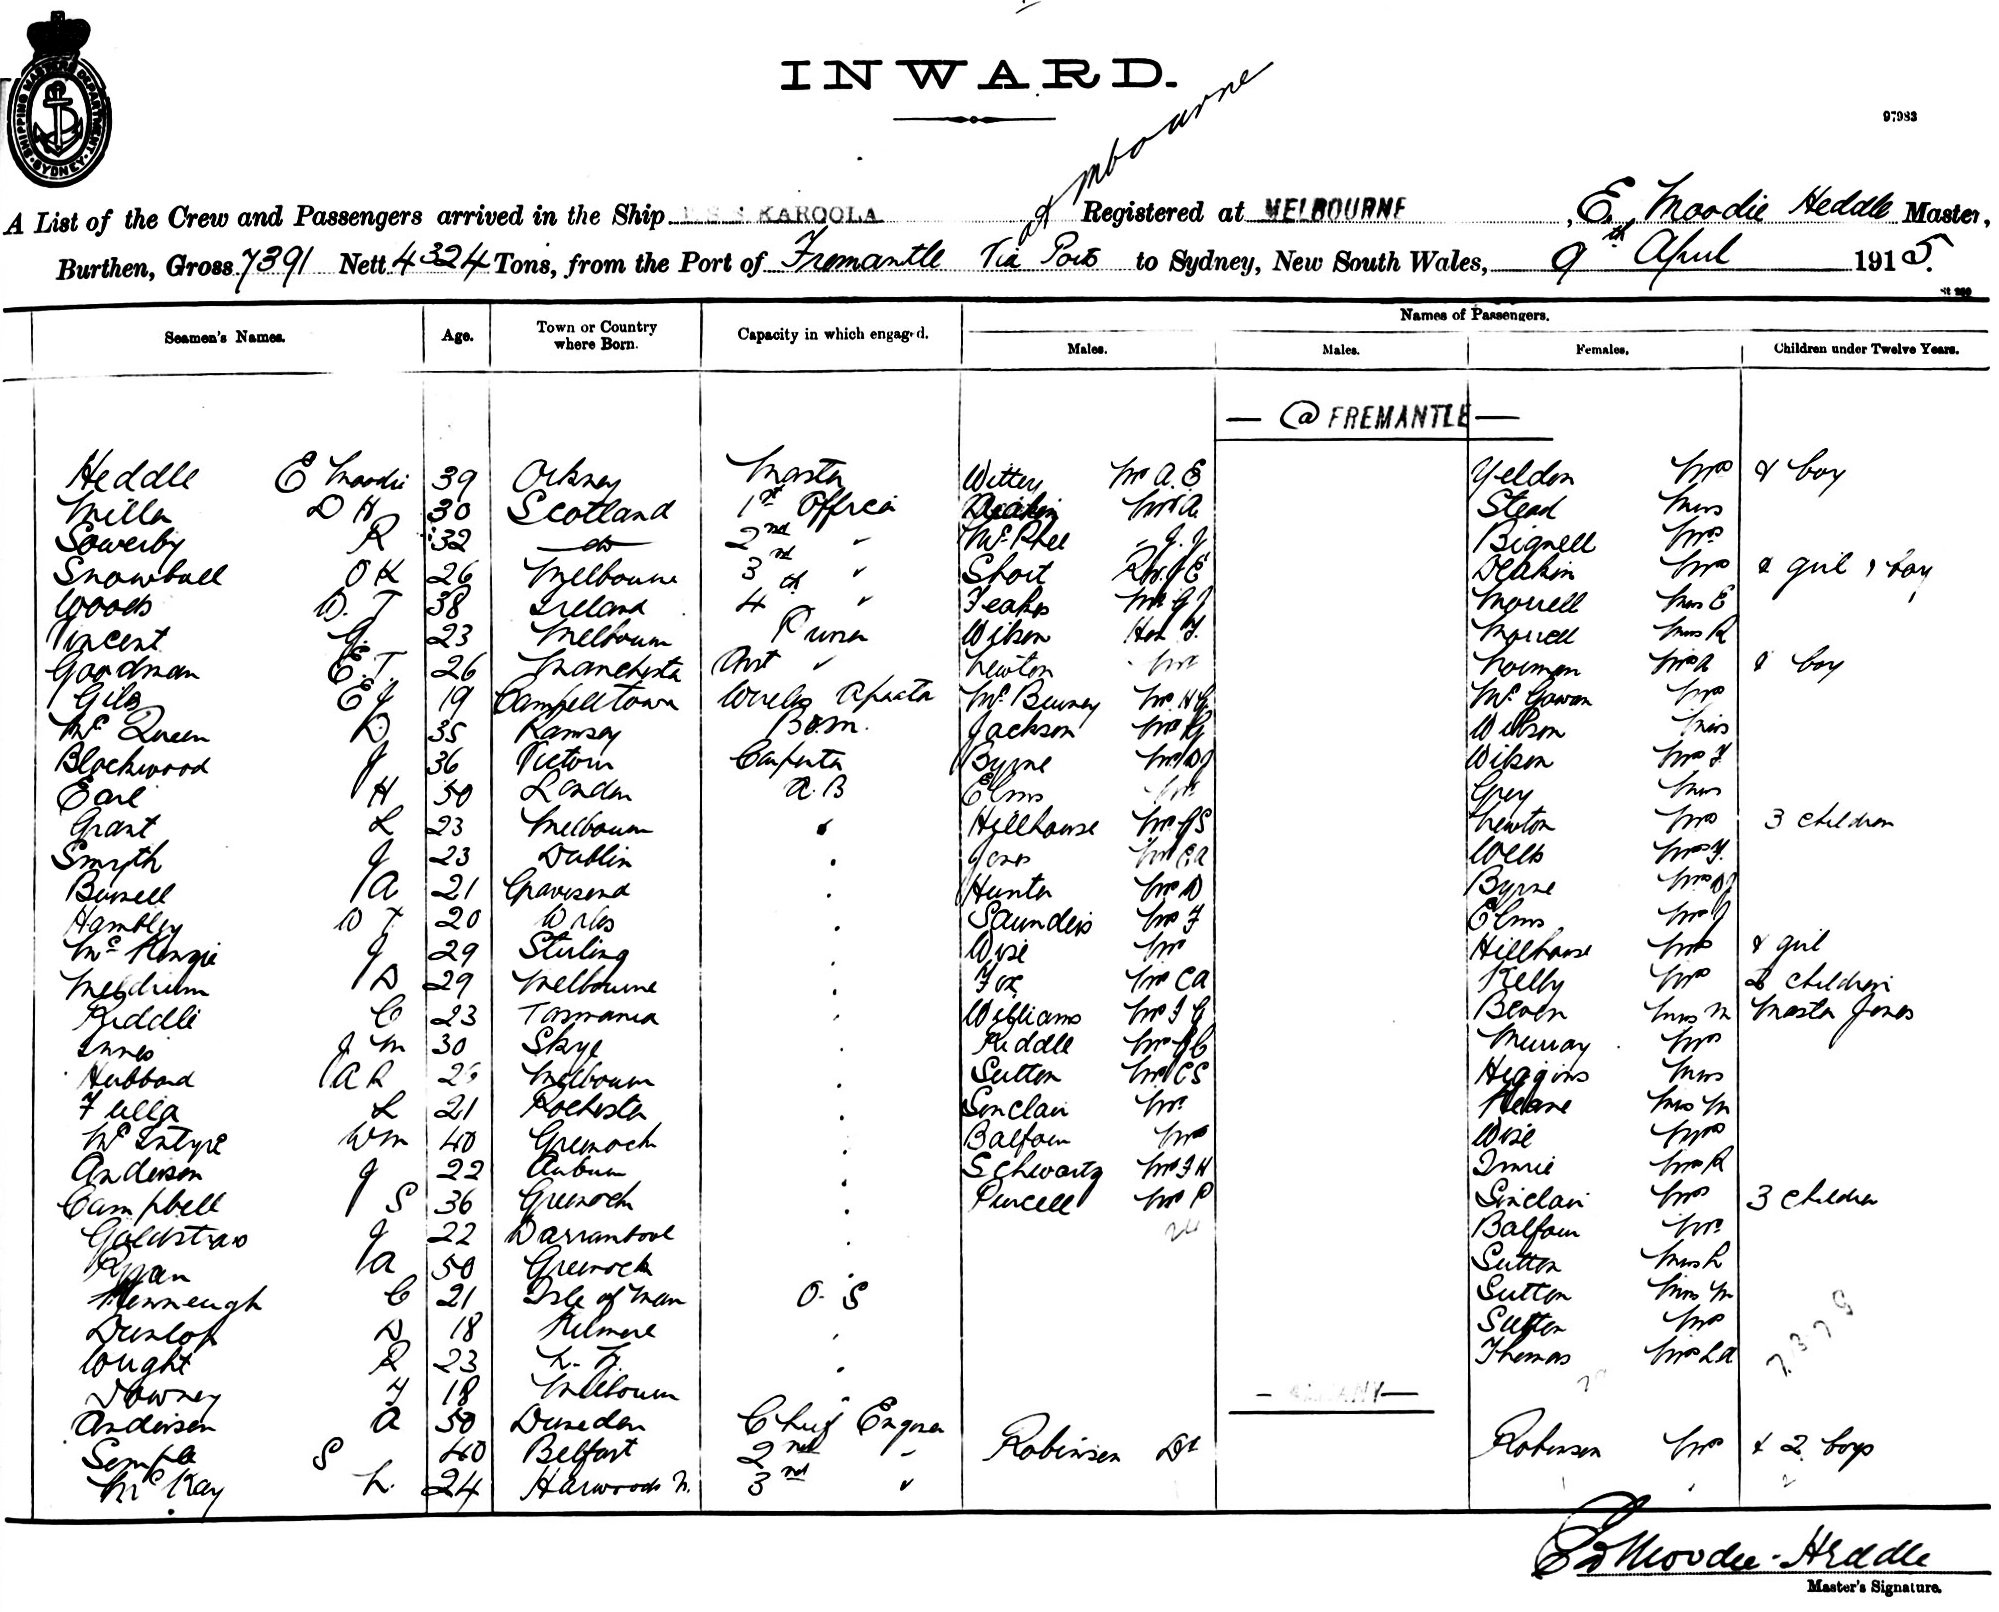 SHIPPING MASTERS DEPARTMENT SYDNEY
INWARD.
97983
A List of the Crew and Passengers arrived in the Ship KAROOLA Registered at MELBOURNE, E. Moodie Heddle Master,
Burthen, Gross 7391 Nett 4324 Tons, from the Port of Fremantle Via Ports to Sydney, New South Wales, 9th April 1915.
Names of Passengers.
Seamen's Names. Age. Town or Country where Born. Capacity in which engaged. Males. Males. Females. Children under Twelve Years.
— @ FREMANTLE —
Heddle E Moodie 39 Orkney Master Witter Mr A. E Yeldon Mrs & boy
Miller D H 30 Scotland 1st Officer Deakin Mr A. Stead Miss
Sowerby R 32 do 2nd " McPhee " J. J Bignell Mrs
Snowball O K 26 Melbourne 3rd " Short Deakin Mrs & girl & boy
Woods D. T 38 Ireland 4th " Morrell Miss E
Vincent G. 23 Melbourne Purser Wilson Hon F. Morrell Miss R
Goodman E. T. 26 Manchester Asst " Newton Mr Norman Mrs A & boy
Giles E J 19 Campbelltown Wireless Operator Mr McGowan Mrs
McQueen D 35 Ramsey Bosn. Jackson Mr G Wilson Miss
Blackwood J 36 Victoria Carpenter Byrne Mr DJ Wilson Mrs F
Earl H 50 London A. B Elms Mr Grey Miss
Grant L 23 Melbourne " Hillhouse Mr JS Newton Mrs 3 children
Smyth J 23 Dublin " Jones Mr CA Wells Mrs F.
Burnell A 21 Gravesend " Hunter Mr D Byrne Mrs DJ
Hambley D T 20 " Saunders Mr F Elms Mrs J
McKenzie J 29 Stirling " Wise Mr Hillhouse Mrs & girl
Meldrum D 29 Melbourne " Fox Mr CA Kelly Mrs 2 children
Riddle C 23 Tasmania " Williams Mr F G Beven Miss M Master Jones
Innes J M 30 Skye " Riddle Mr Murray Mrs
Hubbard A R Melbourne " Sutton Mr CS Higgins Miss
Fuller L 21 Rochester " Sinclair Mr Keane Miss M
McIntyre Wm 40 Greenock " Balfour Mr Wise Mrs
Anderson J 22 Auburn " Schwartz Mr F H Imrie Mrs R
Campbell S 36 Greenock " Purcell Mr P Sinclair Mrs 3 children
Goldstraw J 22 Warrnambool " 24 Balfour Mrs
Ryan A 50 Greenock " Sutton Miss L
Kenneugh C 21 Isle of Man O. S Sutton Miss M
Dunlop D 18 Kilmore " Sutton Mrs
Wright R 23 N. Z. " Thomas Mrs LA
Downey F 18 Melbourne "
— ALBANY —
Anderson A 50 Dunedin Chief Engineer
Semple S 40 Belfast 2nd " Robinson Dr Robinson Mrs & 2 boys
McKay N. 24 Harwoods 3rd "
E Moodie-Heddle
Master's Signature.